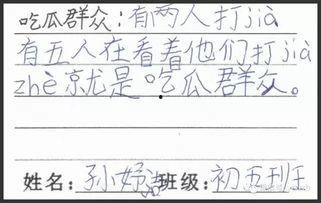 吃瓜群众:有两人打jià
有五人在看着他们打jià
zhè就是吃瓜群众。
姓名:孙妤洁班级:初五班